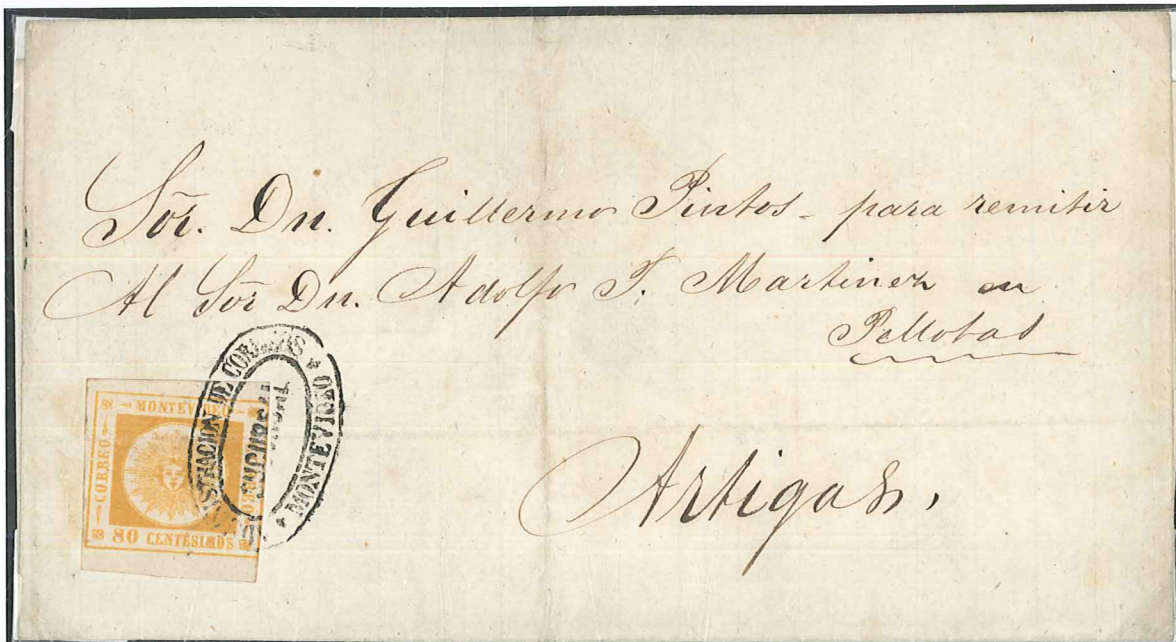 Sōr. Dn. Guillermo Pintos - para remitir
Al Sōr Dn. Adolfo F. Martinez en
Pellotas
Artigas,
MONTEVIDEO
CORREO
CORREO
80 CENTÉSIMOS
ADMINISTRACION DE CORREOS * MONTEVIDEO *
SUCURSAL